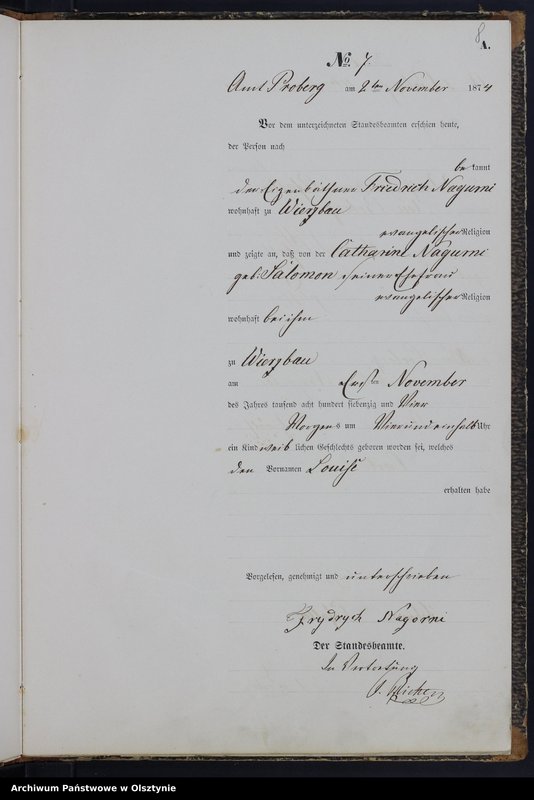 8
A.
No. 7.
Amt Proberg am 2ten November 1874
Vor dem unterzeichneten Standesbeamten erschien heute,
der Person nach
bekannt
der Eigenkäthner Friedrich Nagurni
wohnhaft zu Wiersbau
evangelischer Religion
und zeigte an, daß von der Catharine Nagurni
geb. Salomon, seiner Ehefrau
evangelischer Religion
wohnhaft bei ihm
zu Wiersbau
am Ersten November
des Jahres tausend acht hundert siebenzig und Vier
Morgens um Vier und einhalb Uhr
ein Kind weiblichen Geschlechts geboren worden sei, welches
den Vornamen Louise
erhalten habe
Vorgelesen, genehmigt und unterschrieben
Frydrych Nagorni
Der Standesbeamte.
In Vertretung
Archiwum Państwowe w Olsztynie